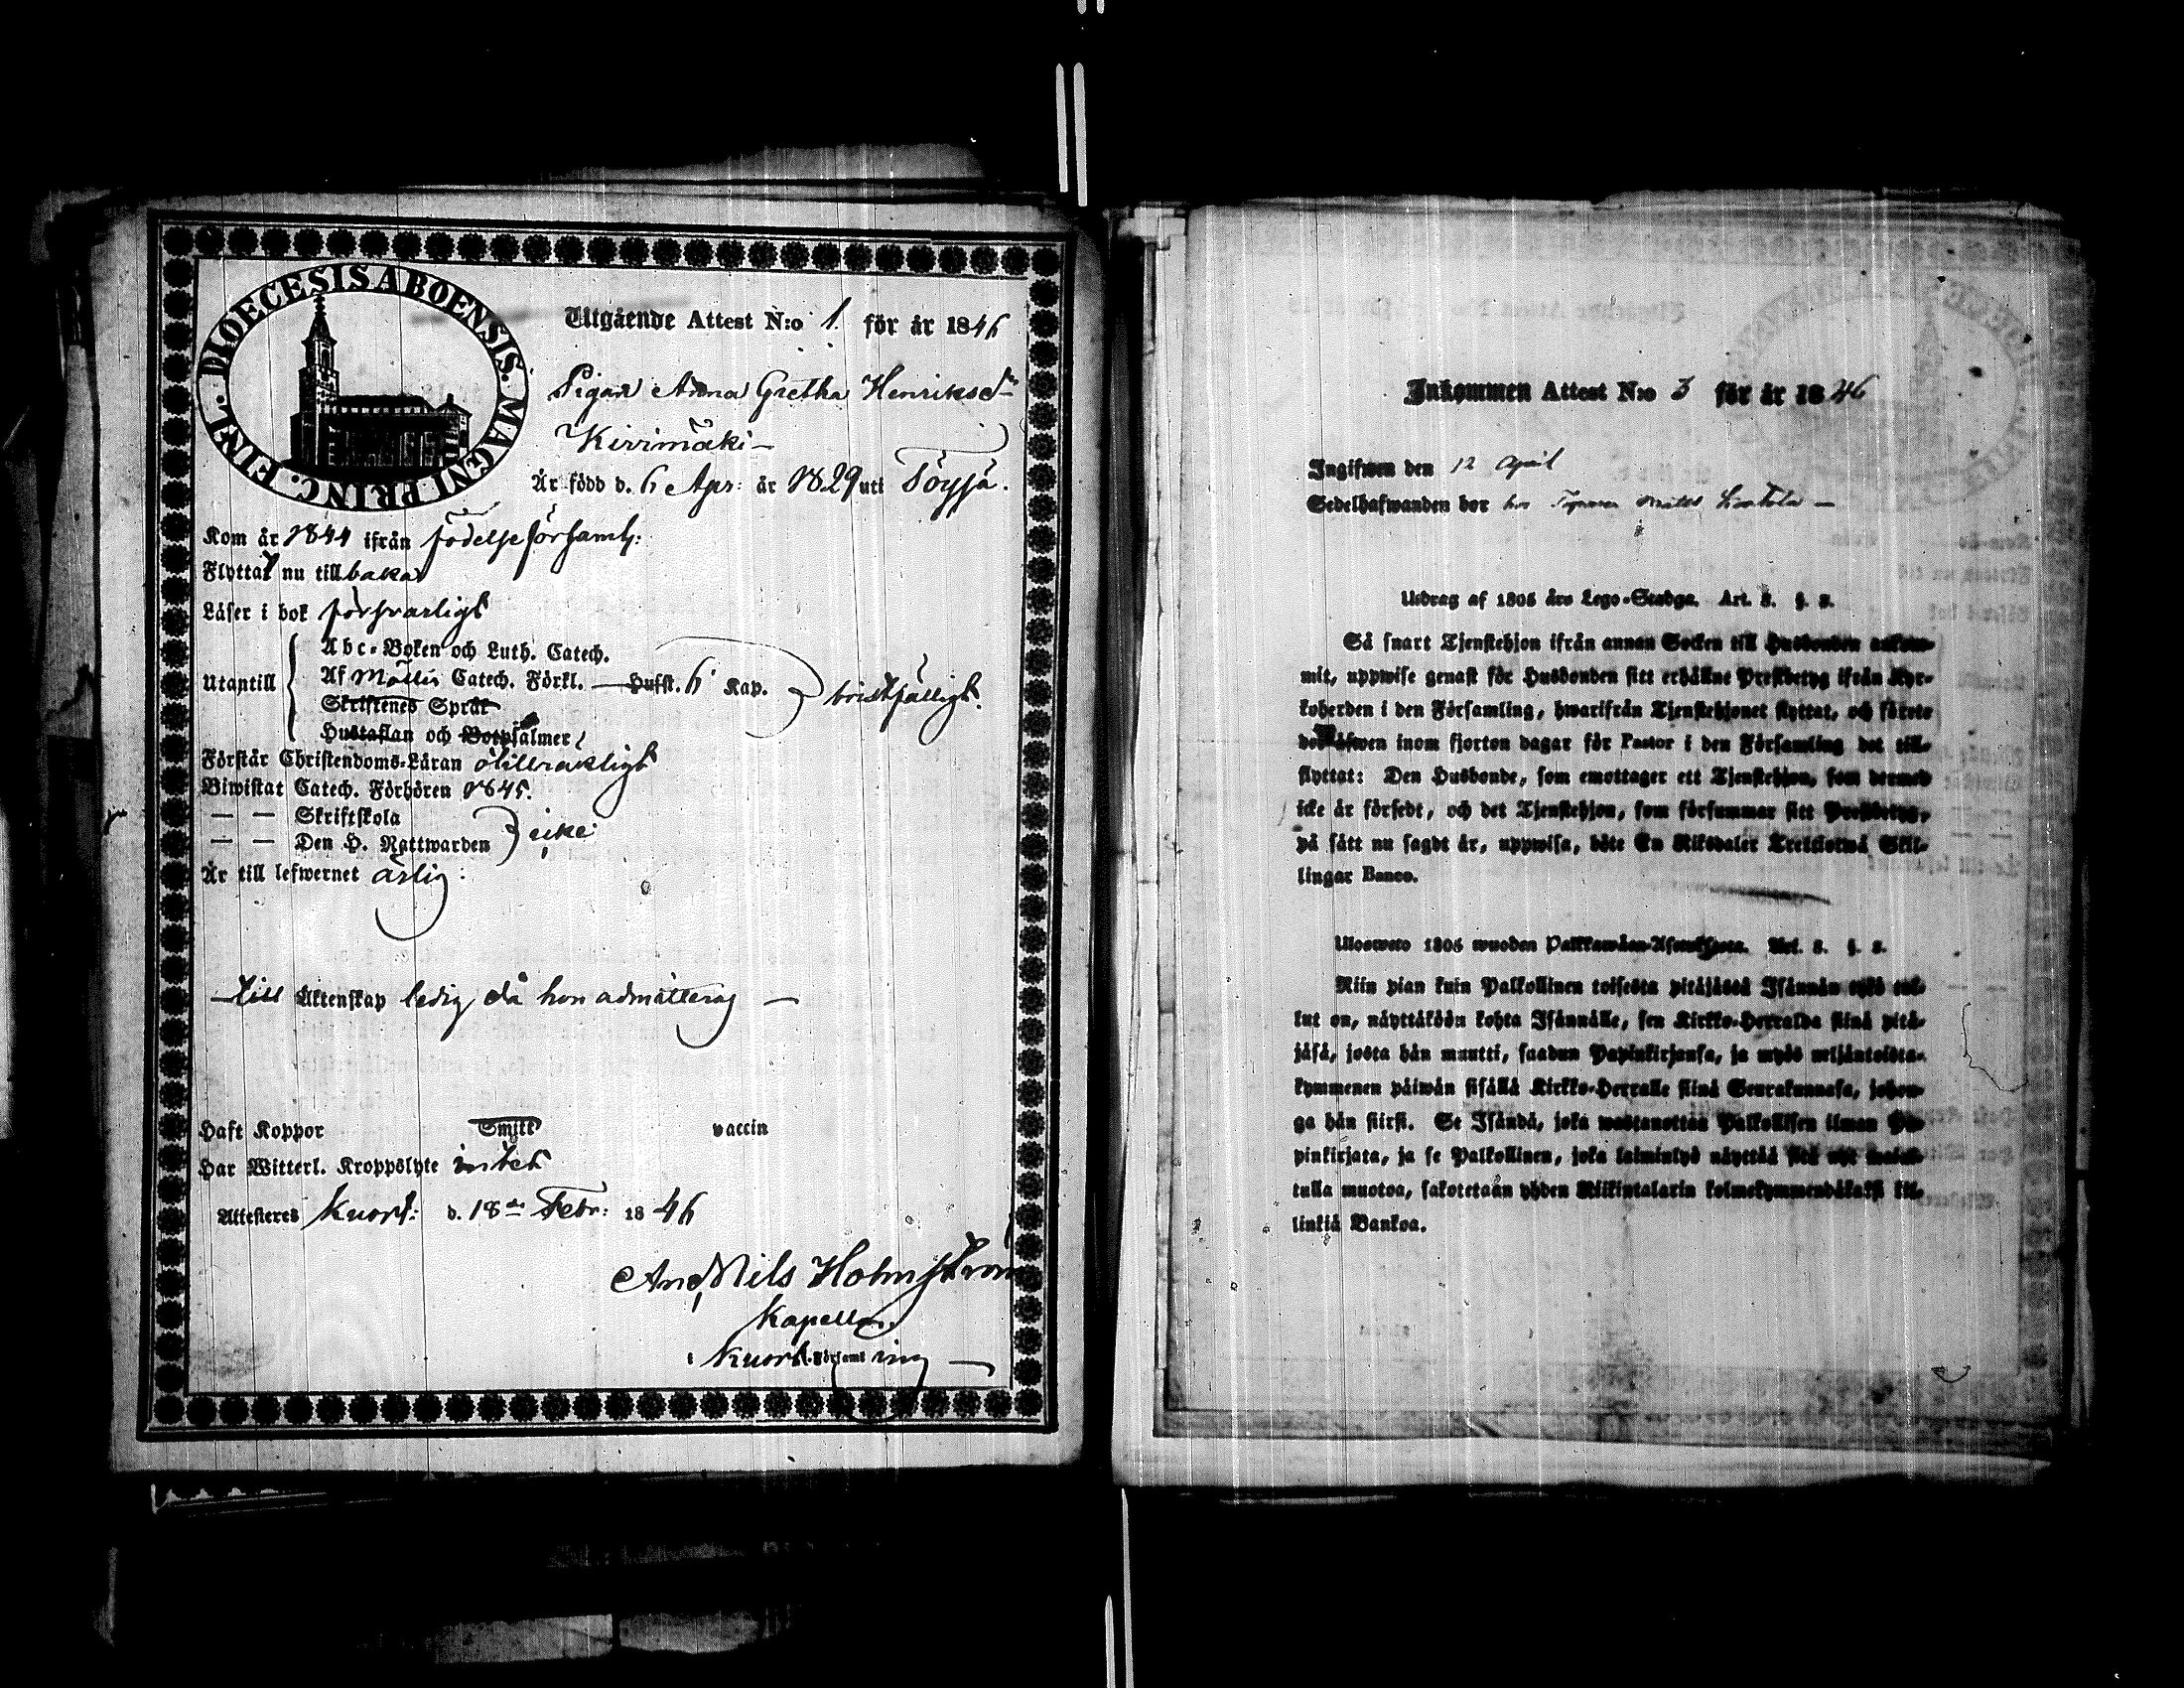 DIOECESIS ABOENSIS. MAGNI PRINC. FINL.
Utgående Attest N:o 1. för år 1846
Pigan Anna Gretha Henriksdr
Kivimäki
Är född d. 6 Apr: år 1829 uti Töysä.
Kom år 1844 ifrån födelseförsaml:
Flyttar nu tillbaka
Läser i bok försvarligt
Utantill
Abc-Boken och Luth. Catech.
Af Möllers Catech. Förkl. Hufst. 6 Kap. bristfälligt.
Skriftenes Språk
Hustaflan och Botpsalmer
Förstår Christendoms-Läran otillräckligt
Biwistat Catech. Förhören 1845.
— — Skriftskola
— — Den H. Nattwarden icke
Är till lefwernet ärlig:
— till Äktenskap ledig, då hon admitteras —
Haft Koppor Smitt vaccin
Har Witterl. Kroppslyte intet
Attesteres Kuort: d. 18de Febr: 1846
And Nils Holmström
Kapellan
i Kuort. Församling —
Inkommen Attest N:o 3 för år 1846
Ingifwen den 12 April
Sedelhafwanden bor hos —
Utdrag af 1805 års Lego-Stadga. Art. 3. §. 2.
Så snart Tjenstehjon ifrån annan Socken till Husbonden ankom-
mit, uppwise genast för Husbonden sitt erhållne Prestbetyg ifrån Kyr-
koherden i den Församling, hwarifrån Tjenstehjonet flyttat, och förete
inom fjorton dagar för Pastor i den Församling det till-
flyttat: Den Husbonde, som emottager ett Tjenstehjon, som dermed
icke är försedt, och det Tjenstehjon, som försummar sitt Prestbetyg,
på sätt nu sagdt är, uppwisa, böte En Riksdaler Trettiotwå Skil-
lingar Banco.
Ulosweto 1805 wuoden Palkkawäen-Asetuksesta. Art. 3. §. 2.
Niin pian kuin Palkollinen toisesta pitäjästä Isännän tykö tul-
lut on, näyttäköön kohta Isännälle, sen Kirkko-Herralda siinä pitä-
jäsä, josta hän muutti, saadun Papinkirjansa, ja myös neljäntoista-
kymmenen päiwän sisällä Kirkko-Herralle siinä Seurakunnasa, johon-
ga hän siirsi. Se Isändä, joka wastanottaa Palkollisen ilman Pa-
pinkirjata, ja se Palkollinen, joka laiminlyö näyttää sitä nyt
tulla muotoa, sakotetaan yhden Riikintalarin kolmekymmendäkaksi kil-
linkiä Bankoa.